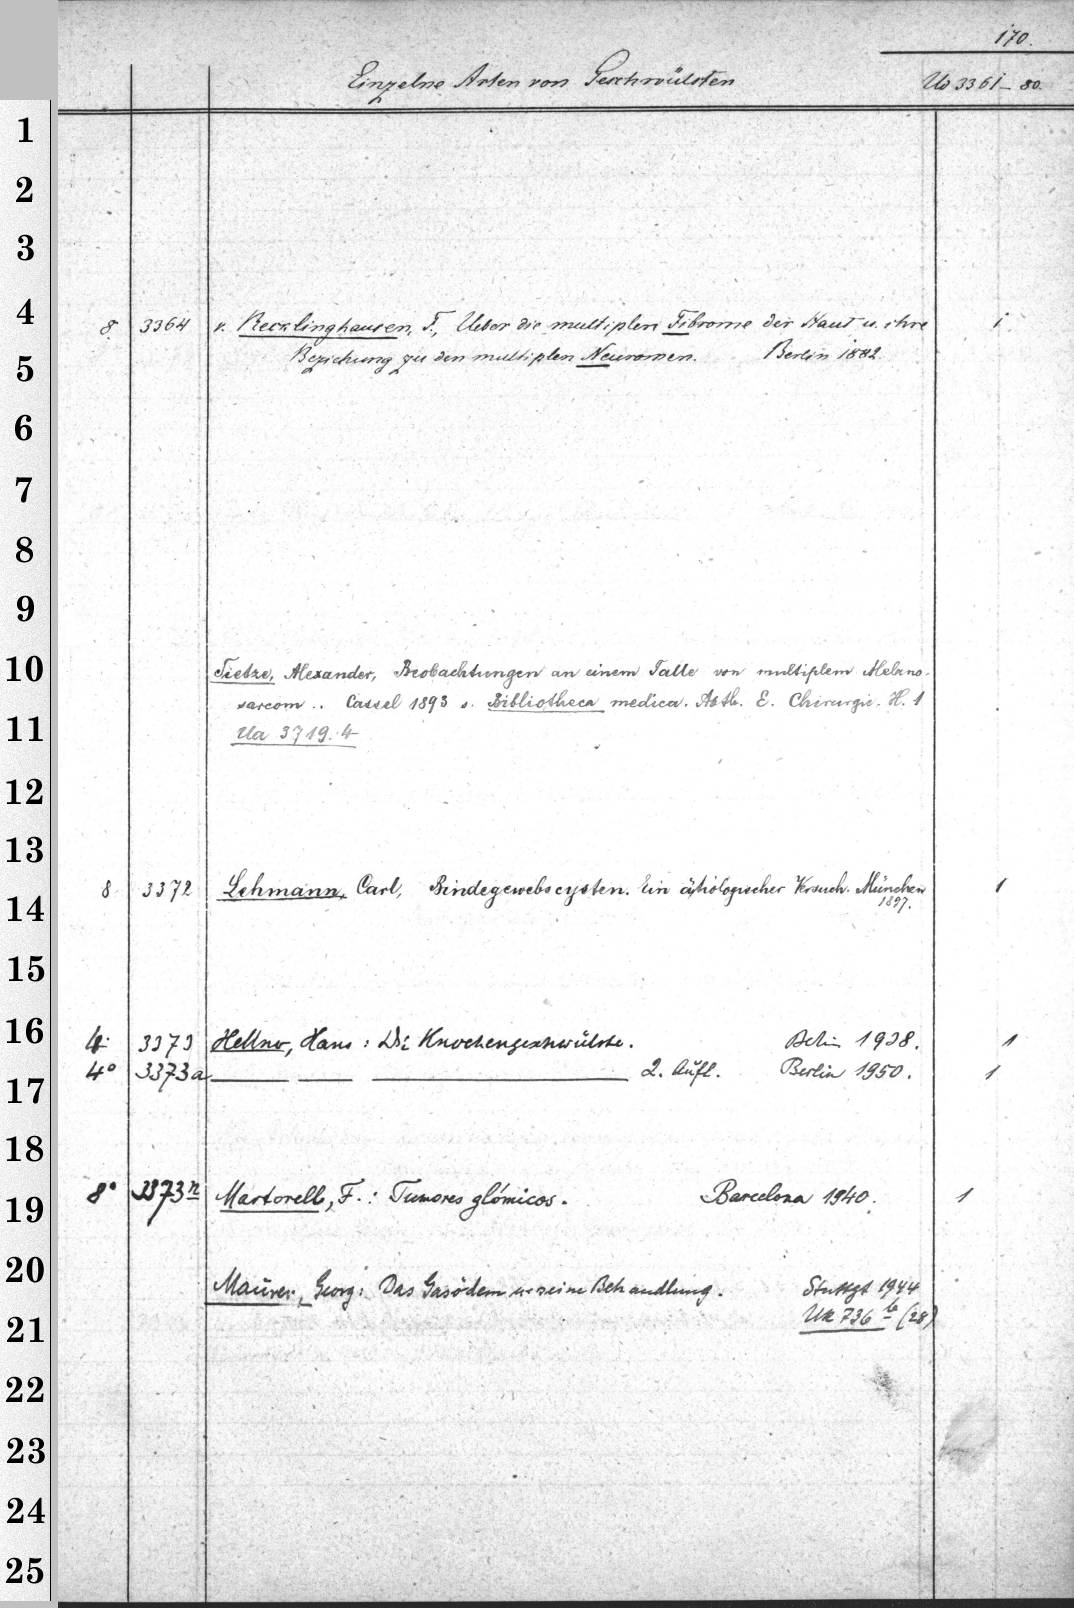 170.
Einzelne Arten von Geschwülsten Uo 3361-80.
1
2
3
4
8. 3364 v. Recklinghausen, F., Ueber die multiplen Fibrome der Haut u. ihre 1
5
Beziehung zu den multiplen Neuromen. Berlin 1882.
6
7
8
9
10
Tietze, Alexander, Beobachtungen an einem Falle von multiplem Melano-
sarcom .. Cassel 1893 s. Bibliotheca medica. Abth. E. Chirurgie. H. 1
11
Ua 3719.4
12
13
8 3372 Lehmann, Carl, Bindegewebscysten. Ein ätiologischer Versuch. München 1
1897.
14
15
16
4. 3373 Hellner, Hans: Die Knochengeschwülste. Berlin 1938. 1
4° 3373a 2. Aufl. Berlin 1950. 1
17
18
8° 3373n Martorell, F.: Tumores glómicos. Barcelona 1940. 1
19
20
Maurer, Georg: Das Gasödem u. seine Behandlung. Stuttgt 1944
Uk 736 b (28)
21
22
23
24
25